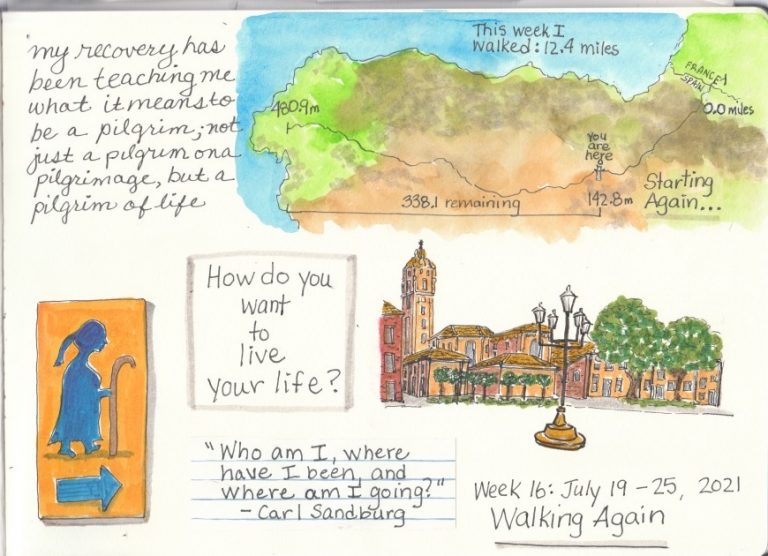 my recovery has
been teaching me
what it means to
be a pilgrim; not
just a pilgrim on a
pilgrimage, but a
pilgrim of life
This week I
walked: 12.4 miles
FRANCE
SPAIN
480.9m
0.0 miles
you
are
here
338.1 remaining
142.8m
Starting
Again...
How do you
want
to
live
your life?
"Who am I, where
have I been, and
where am I going?"
- Carl Sandburg
Week 16: July 19-25, 2021
Walking Again